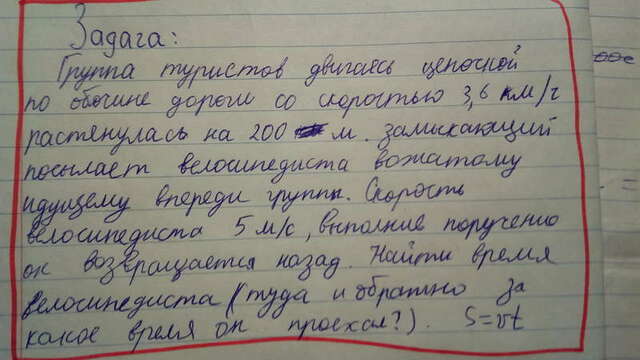 Задача:
Группа туристов двигаясь цепочкой
по обочине дороги со скоростью 3,6 км/ч
растянулась на 200 м. замыкающий
посылает велосипедиста вожатому
идущему впереди группы. Скорость
велосипедиста 5 м/с, выполние поручению
он возвращается назад. Найти время
велосипедиста (туда и обратно за
какое время он проехал?). S=vt